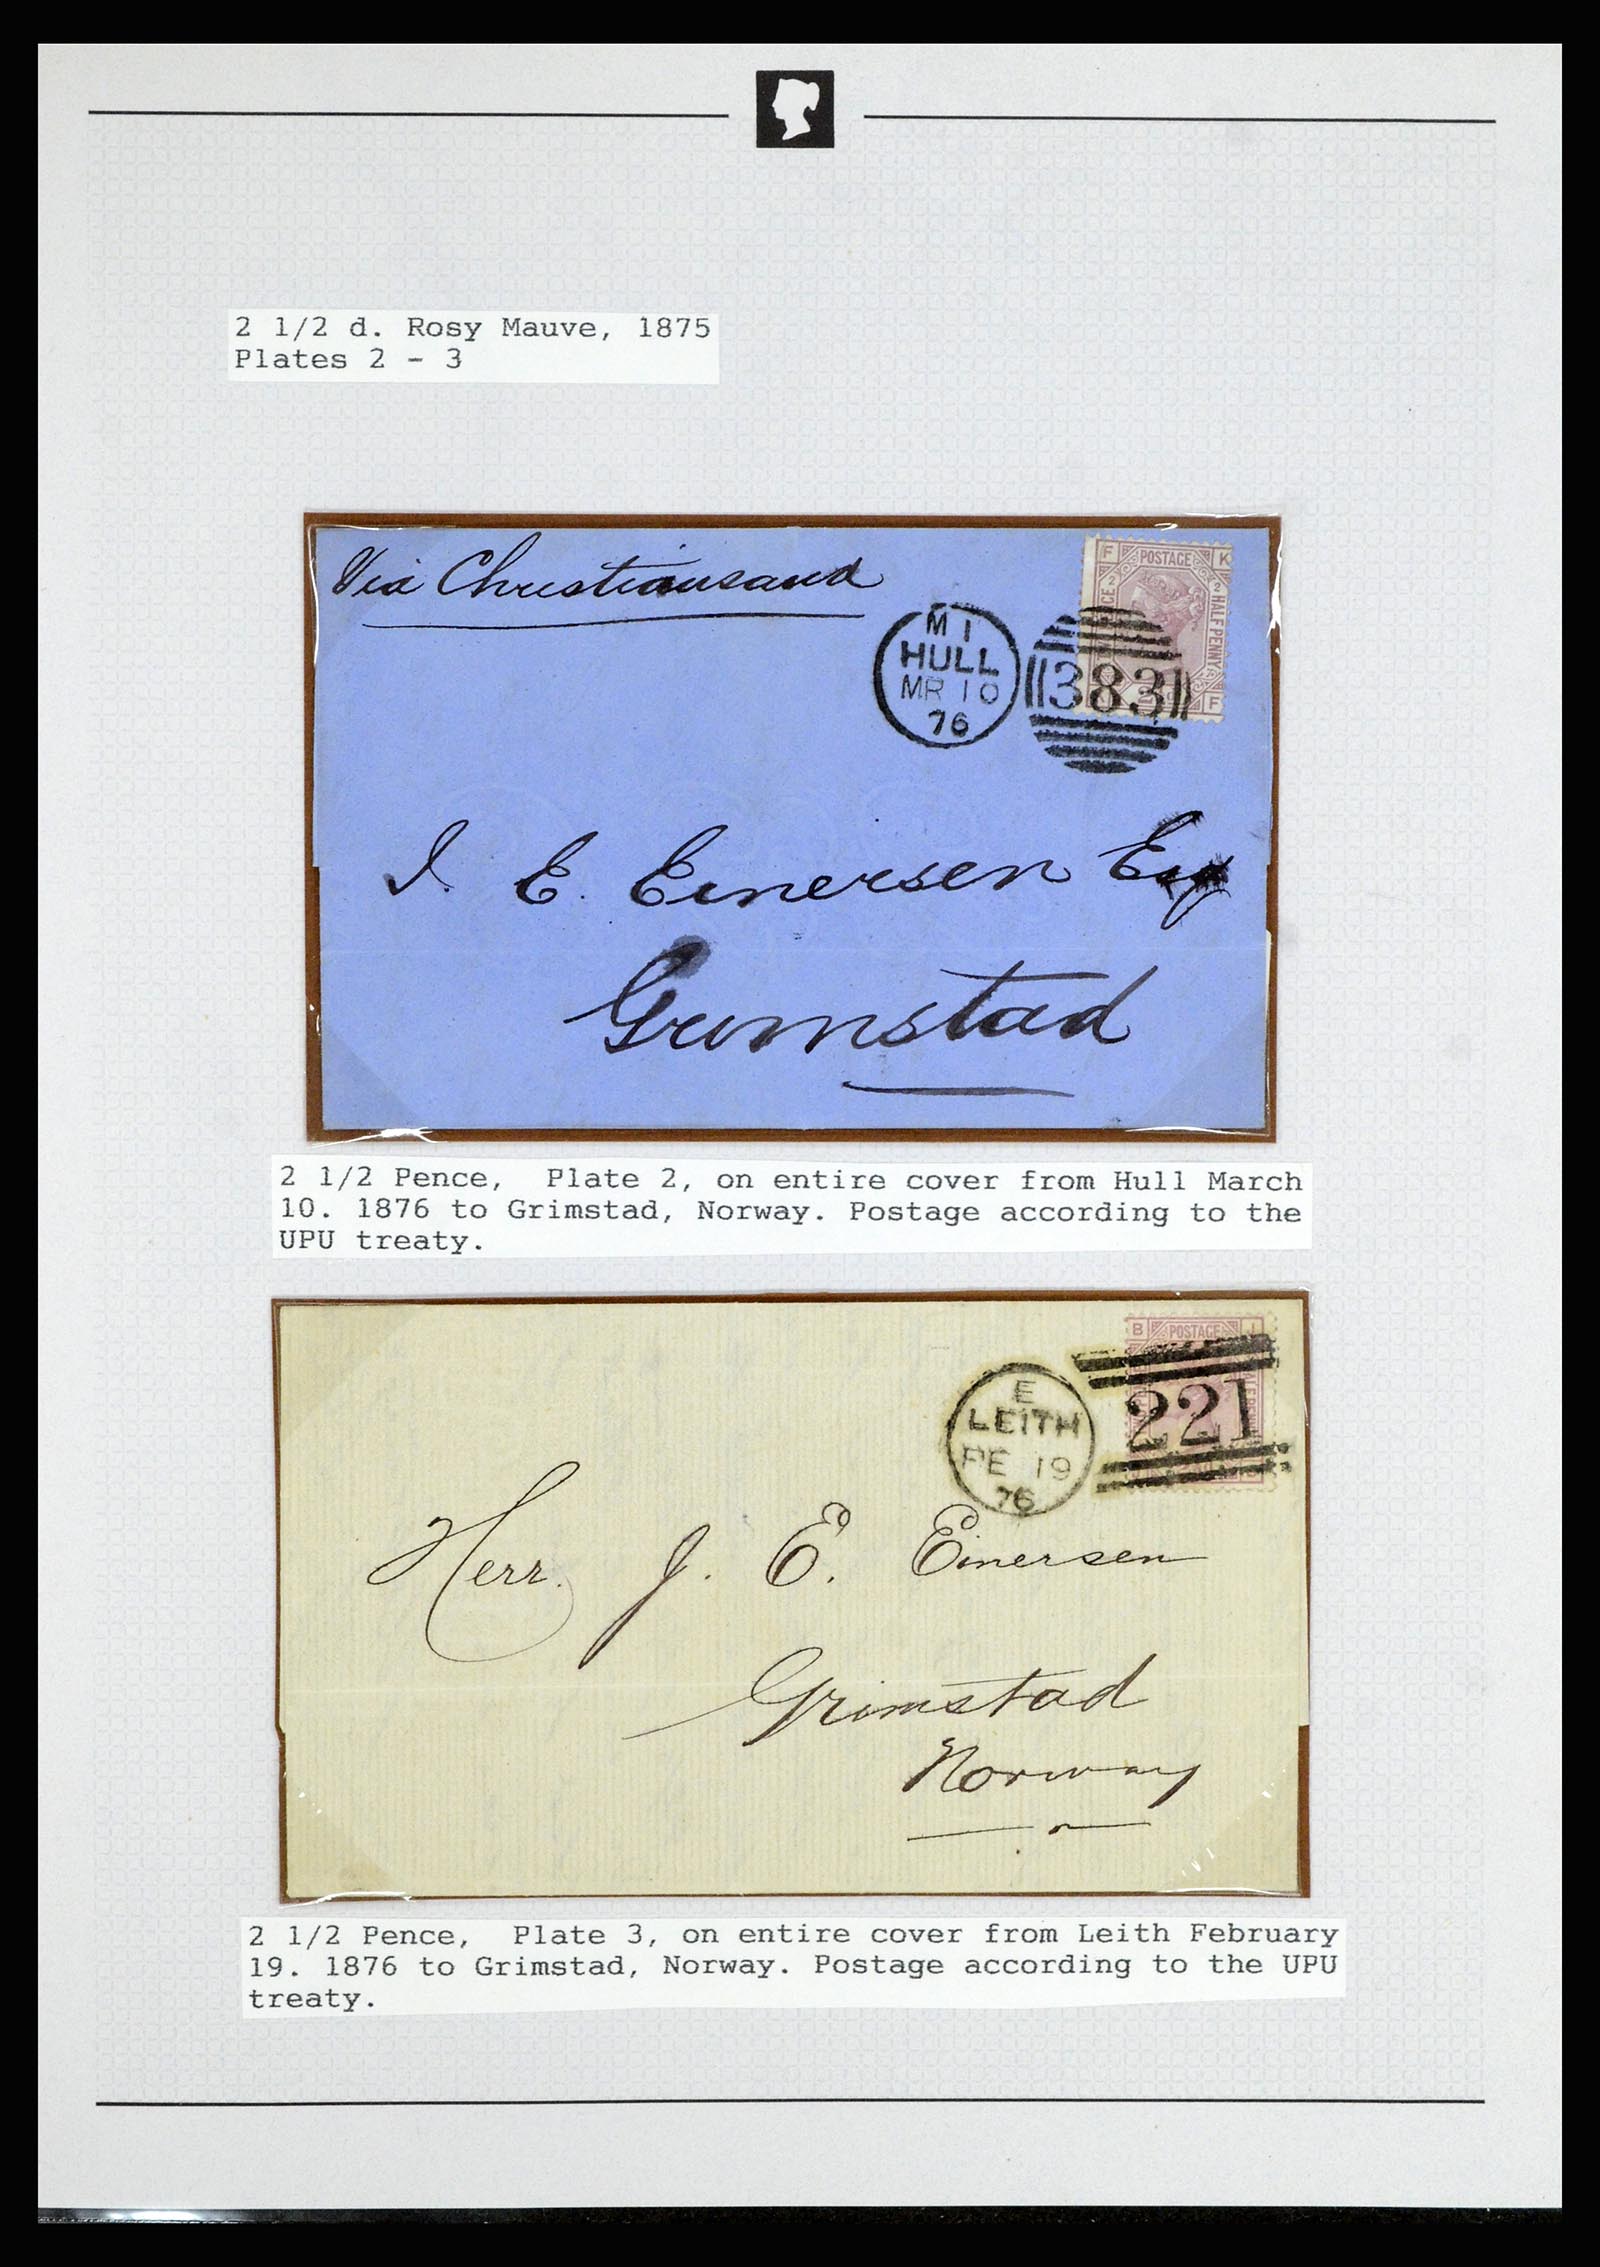 2 1/2 d. Rosy Mauve, 1875
Plates 2 - 3
Via Christiansand
F POSTAGE K
2
HALF PENNY
F
M 1
HULL
MR 10
76
383
J. E. Einersen Esq
Grimstad
2 1/2 Pence, Plate 2, on entire cover from Hull March
10. 1876 to Grimstad, Norway. Postage according to the
UPU treaty.
B POSTAGE I
E
LEITH
FE 19
76
221
Herr. J. E. Einersen
Grimstad
Norway
2 1/2 Pence, Plate 3, on entire cover from Leith February
19. 1876 to Grimstad, Norway. Postage according to the UPU
treaty.